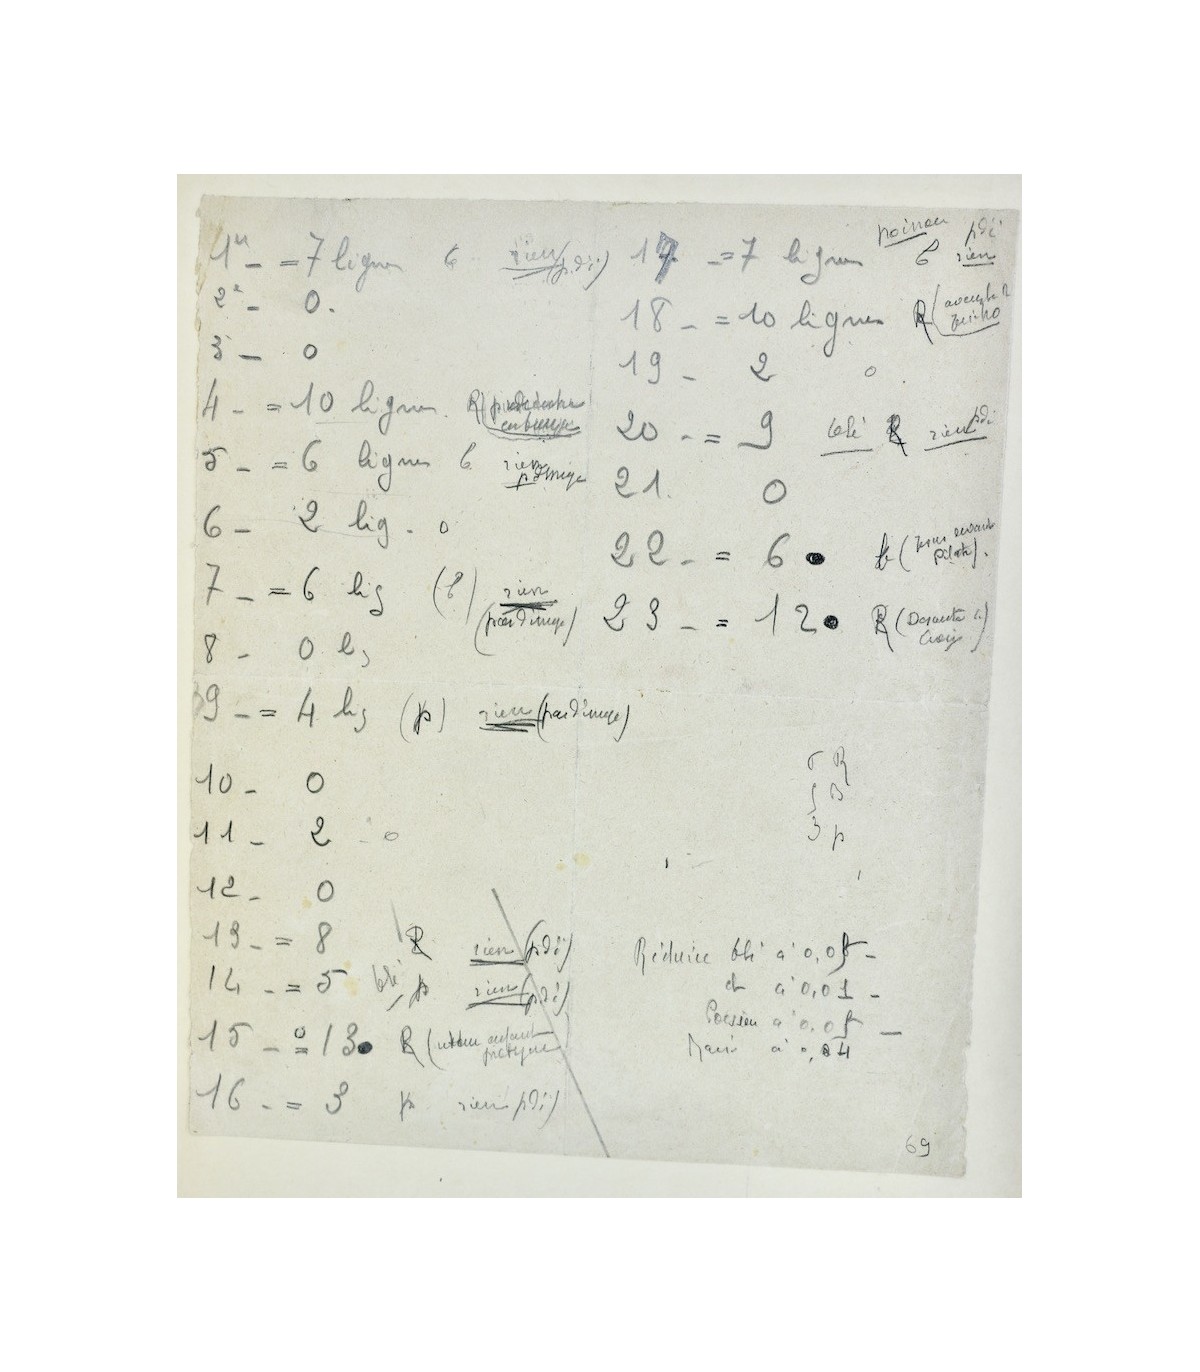 1er - = 7 lignes b rien (p.d'i)
2e - 0.
3 - 0
4 - = 10 lignes. R
5 - = 6 lignes b rien p d'image
6 - 2 lig - 0
7 - = 6 lig (b) rien
(pas d'image)
8 - 0 lig
9 - = 4 lig (p) rien (pas d'image)
10 - 0
11 - 2 - 0
12 - 0
13 - = 8 R rien (p d'i)
14 - = 5 blé p rien (p d'i)
15 - 0 = 13 R
16 - = 3 p rien p d'i)
poisson p d'i
17 = 7 lignes b rien
18 - = 10 lignes R
19 - 2 0
20 - = 9 blé R rien p d'i
21. 0
22 - = 6 (Jésus devant
Pilate).
23 - = 12 R (Descente de
Croix)
5 R
5 B
3 p
Réduire blé à 0,05 -
et à 0,01 -
Poisson à 0,05 -
à 0,04
69